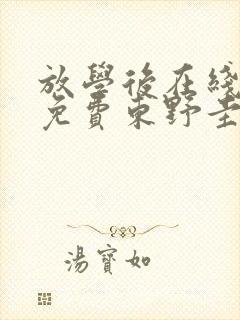 放學後在綫
免費東野圭
湯寶如